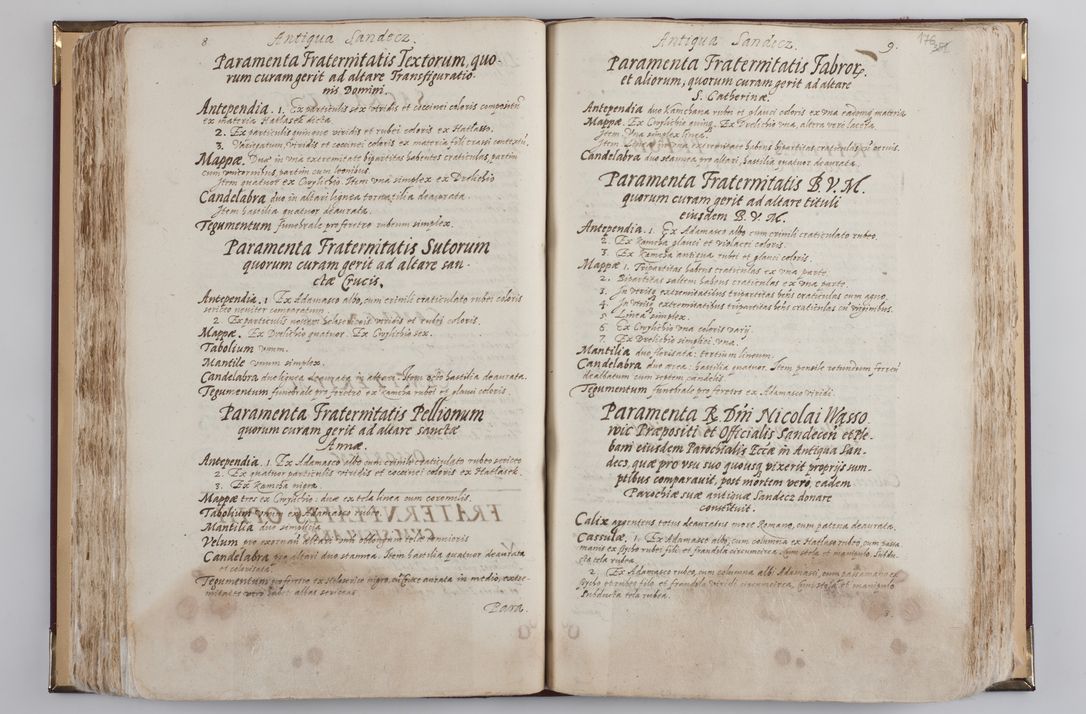 8 Antiqua Sandecz
Paramenta Fraternitatis Textorum, quo-
rum curam gerit ad altare Transfiguratio-
nis Domini.
Antependia. 1. Ex particulis sex viridis et coccinei coloris compositũ
ex materia Hatlasek dicta.
2. Ex particulis quinque viridis et rubei coloris ex Hatlasso.
3. Variegatum, viridis et coccinei coloris ex materia fili crassi contextũ.
Mappæ. Duæ in vna extremitate bipartitas habentes craticulas, partim
cum partim cum leonibus.
Item quatuor ex Cwylichio. Item vna simplex ex Drelichio
Candelabra duo in altari lignea deaurata.
Item hastilia quatuor deaurata.
Tegumentum funebrale pro feretro rubeum simplex.
Paramenta Fraternitatis Sutorum
quorum curam gerit ad altare san-
ctæ Crucis.
Antependia. 1 Ex Adamasco albo, cum crinili craticulato rubei coloris
sericeo noviter comparatum.
2. Ex particulis novem viridis et rubei coloris.
Mappæ. Ex Drelichio quatuor. Ex Cwylichio sex.
Tabolium vnum.
Mantile vnum simplex.
Candelabra duo lignea deaurata in altari. Item octo hastilia deaurata.
Tegumentum funebrale pro feretro ex Kamcha rubei et glauci coloris.
Paramenta Fraternitatis Pellionum
quorum curam gerit ad altare sanctæ
Annæ.
Antependia. 1. Ex Adamasco albo cum crinili craticulato rubeo sericeo
2. Ex quatuor particulis viridis et coccinei coloris ex Hatlasek.
3. Ex Kamcha nigra.
Mappæ tres ex Cwylichio: duæ ex tela linea cum coronulis.
Tabolium vnum ex Adamasco rubro.
Mantilia duo simplicia.
Velum pro exornan: altari vnũ oblongum tela tenuioris
Candelabra pro altari duo stannea. Item hastilia quatuor deaurata
et colorisata.
Tegumentum pro feretro ex Holoserico nigro, cũ Cruce aurata in medio, extre-
mitates vero habet albas sericeas.
Para.
Antiqua Sandecz. 9.
176
Paramenta Fraternitatis Fabror.
et aliorum, quorum curam gerit ad altare
S. Catherinæ.
Antependia duo Kamchana rubei et glauci coloris ex vna eademq materia
Mappæ. Ex Cwylichio quinq. Ex Drelichio vna, altera vero lacera.
Item. Vna simplex linea.
Item vna extremitate habens bipartitas craticulas cũ ceruis.
Candelabra duo stannea pro altari, hastilia quatuor deaurata.
Paramenta Fraternitatis B. V. M.
quorum curam gerit ad altare tituli
eiusdem B. V. M.
Antependia. 1. Ex Adamasco albo cum crinili craticulato rubeo.
2. Ex Kamcha glauci et violacei coloris.
3. Ex Kamcha antiqua rubei et glauci coloris.
Mappæ 1. Tripartitas habens craticulas ex vna parte.
2. Bipartitas saltem habens craticulas ex vna parte.
3. In vtrisq extremitatibus tripartitas hñs craticulas cum agno.
4. In vtrisq extremitatibus tripartitas hñs craticulas cũ virginibus.
5 Linea simplex.
6 Ex Cwylichio vna coloris varij.
7. Ex Drelichio simplici vna.
Mantilia duo florisata: tertium lineum.
Candelabra duo ærea: hastilia quatuor. Item pensile rotundum ferreũ
dealbatum cum septem candelis.
Tegumentum funebrale pro feretro ex Adamasco viridi.
Paramenta R. Dni Nicolai Wasso
wic Præpositi et Officialis Sandecen et Ple-
bani eiusdem Parochialis Eccæ in Antiqua San-
decz, quæ pro vsu suo quousq vixerit proprijs sum-
ptibus comparauit, post mortem vero, eadem
Parochiæ suæ antiquæ Sandecz donare
constituit.
Calix argenteus totus deauratus more Romano, cum patena deaurata.
Cassulæ. 1. Ex Adamasco albo, cum columna ex Hatlasso rubeo, cum passa
manis ex rubei fili, et frandzla circumcirca. Cum stola et manipulo. Subdu-
cta tela rubea.
2. Ex Adamasco rubeo, cum columna albi Adamasci, cum passamanis ex
et rubeo filo, et frandzla viridi circumcirca. Cum stola et manipulo
subducta tela rubea.
3.